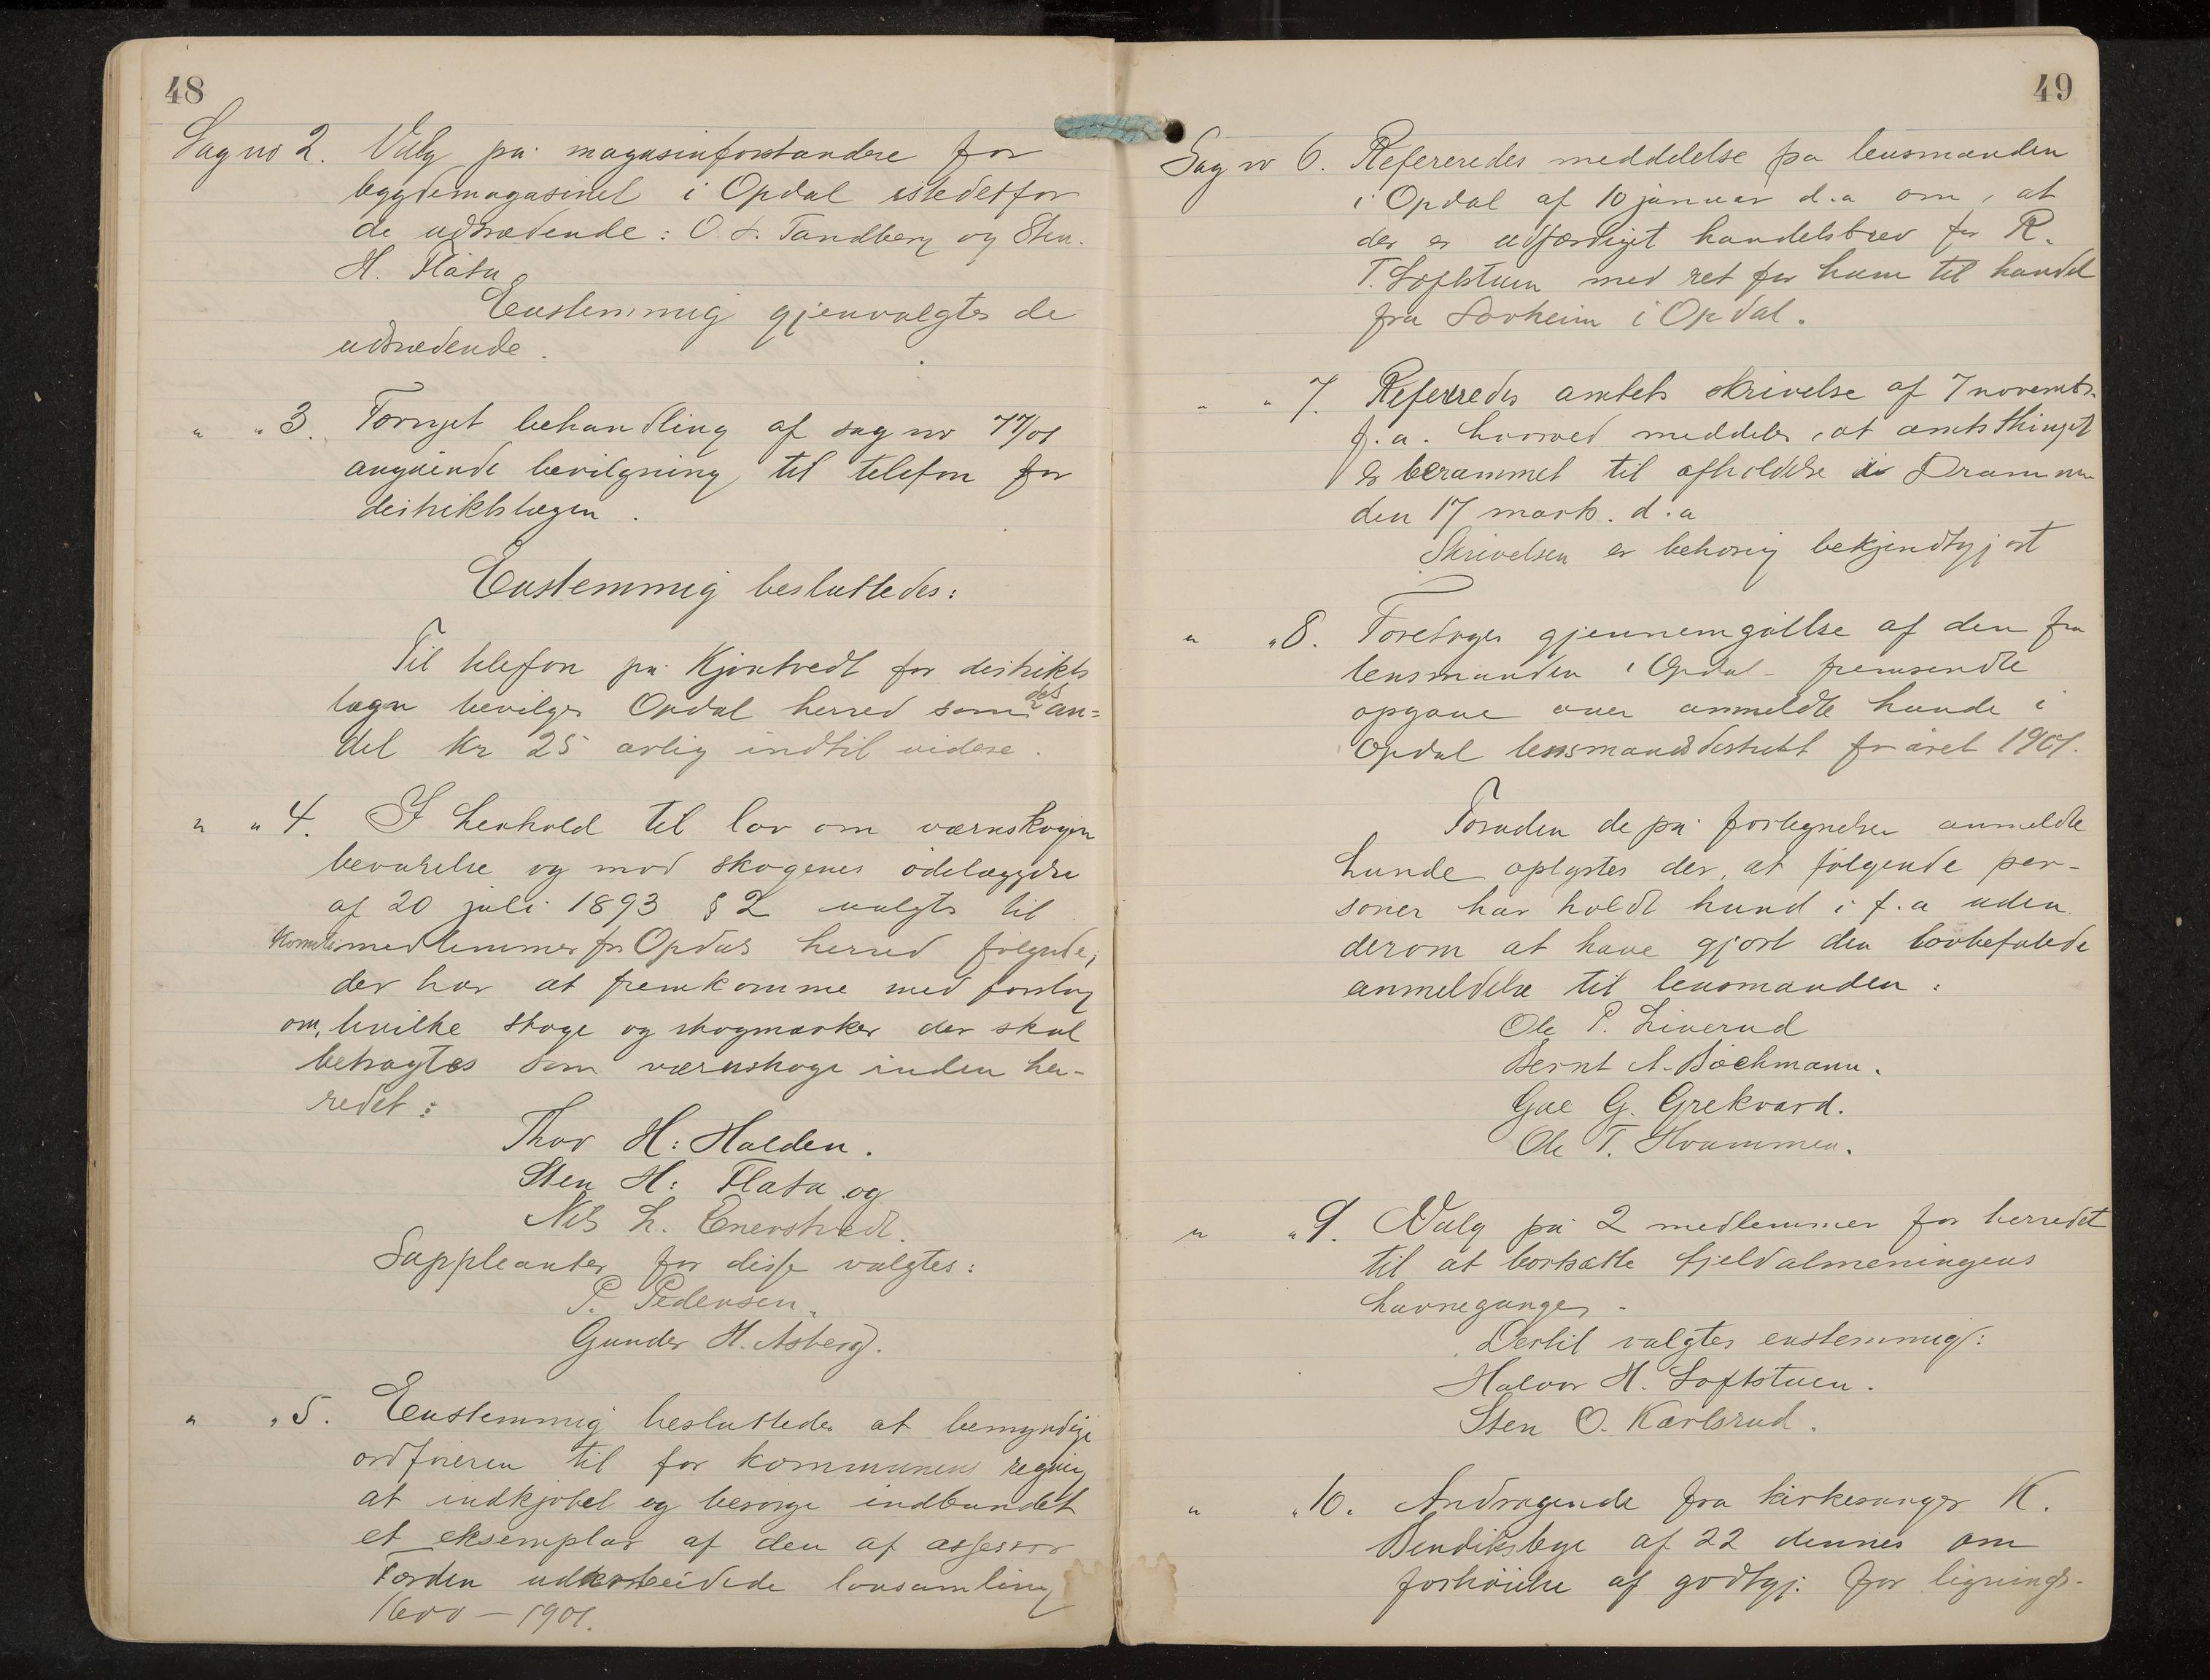 48
Sag no 2. Valg på magasinforstandere for
bygdemagasinet i Opdal istedetfor
de udtrædende: O. L. Tandberg og Sten.
H. Flåta.
Enstemmig gjenvalgtes de
udtrædende.
" " 3. Fornyet behandling af sag no 77/01
angående bevilgning til telefon for
distriktslægen.
Enstemmig besluttedes:
Til telefon på Kjøntvedt for distrikts
lægen bevilges Opdal herred som dets an=
del kr 25 årlig indtil videre.
" " 4. I henhold til lov om værnskogen
bevarelse og mod skogenes ødelæggelse
af 20 juli 1893 § 2 valgts til
medlemmer for Opdal herred følgende,
der har at fremkomme med forslag
om, hvilke skoge og skogmarker der skal
betragtes som værnskoge inden her-
redet:
Thor H. Halden.
Sten H. Flata og
Nils L. Enerstvedt.
Suppleanter for disse valgtes:
P. Pedersen.
Gunder H. Åsberg.
" " 5. Enstemmig besluttedes at bemyndige
ordføreren til for kommunens regning
at indkjøbet og besørge indbundet
et eksemplar af den af assessor
Færden udarbeidede lovsamling
1600 – 1901.
49
Sag no 6. Refereredes meddelelse fra lensmanden
i Opdal af 10 januar d.a om, at
der er udfærdiget handelsbrev for R.
T. Loftstuen med ret for ham til handel
fra Lovheim i Opdal.
" " 7. Refereredes amtets skrivelse af 7 novembr.
f.a. hvorved meddeles, at amtsthinget
er berammet til afholdelse i Drammen
den 17 marts. d.a
Skrivelsen er behørig bekjendtgjort
" " 8. Foretoges gjennemgåelse af den fra
lensmanden i Opdal fremsendte
opgave over anmeldte hunde i
Opdal lensmandsdistrikt for året 1901.
Foruden de på fortegnelsen anmeldte
hunde oplystes der, at følgende per-
soner har holdt hund i f.a uden
derom at have gjort den lovbefalede
anmeldelse til lensmanden:
Ole P. Liverud
Bernt A. Bochmann.
G. Grekvard.
Ole T. Hvammen.
" " 9. Valg på 2 medlemmer for herredet
til at bortsætte fjeldalmeningens
havnegange.
Dertil valgtes enstemmig:
Halvor H. Loftstuen.
Sten O. Karlsrud.
" " 10. Andragende fra kirkesanger K.
Bendiksbye af 22 dennes om
forhøielse af godtgj. for lignings-